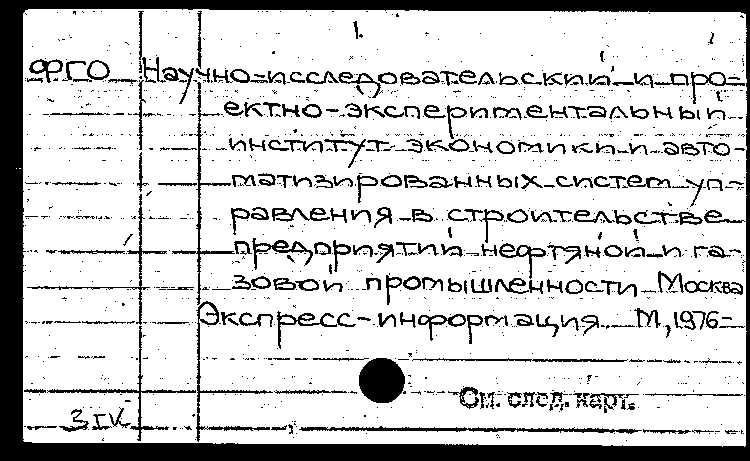 1.
ФРГО Научно-исследовательский и про-
ектно-экспериментальный
институт экономики и авто-
матизированных систем уп-
равления в строительстве
предприятий нефтяной и га-
зовой промышленности Москва
Экспресс-информация М, 1976-
См. след. карт.
3 ГК